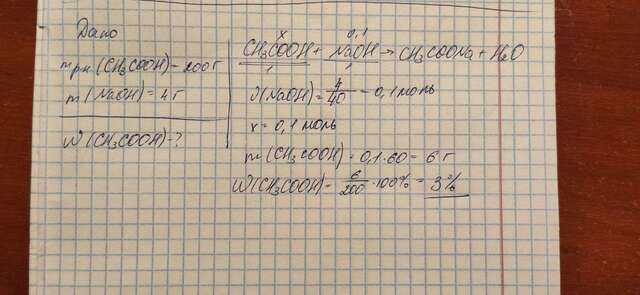 Дано
mрн (CH₃COOH) = 200 г
m (NaOH) = 4 г
W (CH₃COOH) - ?
x 0,1
CH₃COOH + NaOH → CH₃COONa + H₂O
1 1
ν(NaOH) = 4/40 = 0,1 моль
x = 0,1 моль
m (CH₃COOH) = 0,1 · 60 = 6 г
W (CH₃COOH) = 6/200 · 100% = 3%